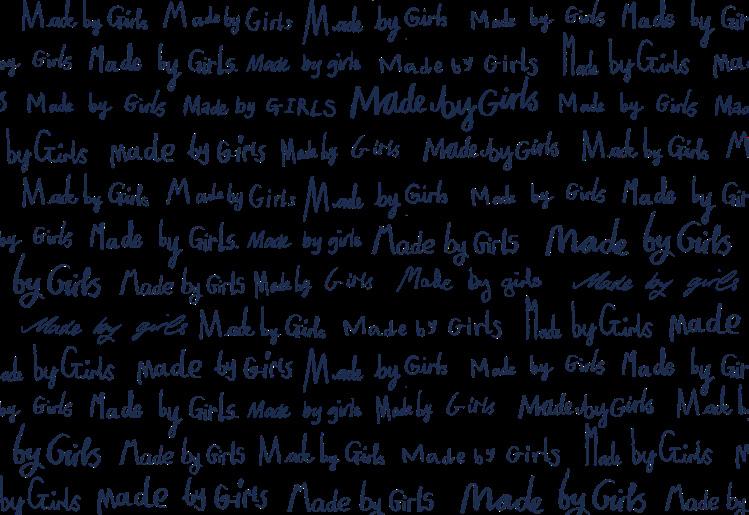 Made by Girls Made by Girls Made by Girls Made by Girls Made by Gir
by Girls Made by Girls. Made by girls Made by Girls Made by Girls Ma
s Made by Girls Made by GIRLS Made by Girls Made by Girls Mad
by Girls made by Girls Made by Girls Made by Girls Made by Girls M
Made by Girls Made by Girls Made by Girls Made by Girls Made by Gir
by Girls Made by Girls. Made by girls Made by Girls Made by Girls
by Girls Made by Girls Made by Girls Made by girls Made by girls
Made by girls Made by Girls Made by Girls Made by Girls made
ade by Girls made by Girls Made by Girls Made by Girls Made by Gir
by Girls Made by Girls. Made by girls Made by Girls Made by Girls Made b
by Girls Made by Girls Made by Girls Made by Girls Made by Girls
by Girls made by Girls Made by Girls Made by Girls Made by